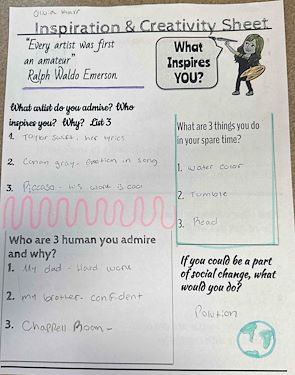 Olivia Hair
Inspiration & Creativity Sheet
"Every artist was first
an amateur"
Ralph Waldo Emerson
What
Inspires
YOU?
What artist do you admire? Who
inspires you? Why? List 3
1. Taylor Swift. her lyrics
2. Conan gray. Emotion in song
3. Piccaso - his work is cool
What are 3 things you do
in your spare time?
1. water color
2. Tumble
3. Read
Who are 3 human you admire
and why?
1. My dad - Hard work
2. my brother. confident
3. Chappell Roan -
If you could be a part
of social change, what
would you do?
Polution